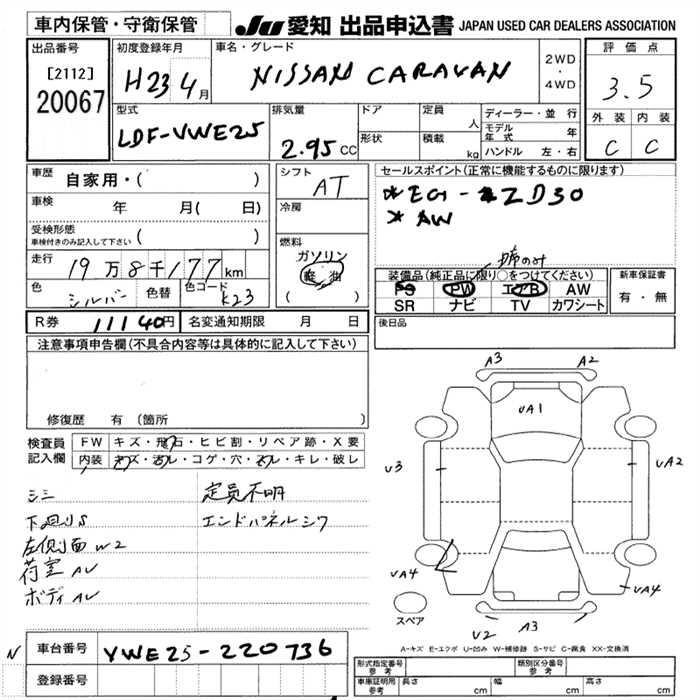 車内保管・守衛保管
JU 愛知 出品申込書 JAPAN USED CAR DEALERS ASSOCIATION
出品番号
[2112]
20067
初度登録年月
H23 4月
車名・グレード
NISSAN CARAVAN
2WD
・
4WD
評価点
3.5
外装 内装
C C
型式
LDF-VWE25
排気量
2.95 CC
ドア
形状
定員
人
積載
kg
ディーラー・並行
モデル年式 年
ハンドル 左・右
車歴
自家用・( )
車検
年 月(日)
受検形態
車検付きのみ記入して下さい ( )
走行
19万8千177km
色
シルバー
色替
色コード
K23
シフト
AT
冷房
燃料
ガソリン
軽油
( )
セールスポイント(正常に機能するものに限ります)
*EG1- ZD30
*AW
のみ
装備品(純正品に限り○をつけてください)
PS PW エアB AW
SR ナビ TV カワシート
新車保証書
有・無
R券 11140円
名変通知期限 月 日
後日品
注意事項申告欄(不具合内容等は具体的に記入して下さい)
修復歴 有(箇所 )
検査員記入欄
FW キズ・飛石・ヒビ割・リペア跡・X要
内装 キズ・汚レ・コゲ・穴・スレ・キレ・破レ
シミ
下廻りS
左側面W2
荷室AU
ボディAU
定員不明
エンドパネルシワ
A3
A2
UA1
U3
UA2
UA4
UA4
U2
A3
スペア
A-キズ E-エクボ U-凹み W-補修跡 S-サビ C-腐食 XX-交換済
N
車台番号
VWE25-220736
登録番号
形式指定番号
参考
類別区分番号
参考
車庫証明用
参考
長さ cm
幅 cm
高さ cm